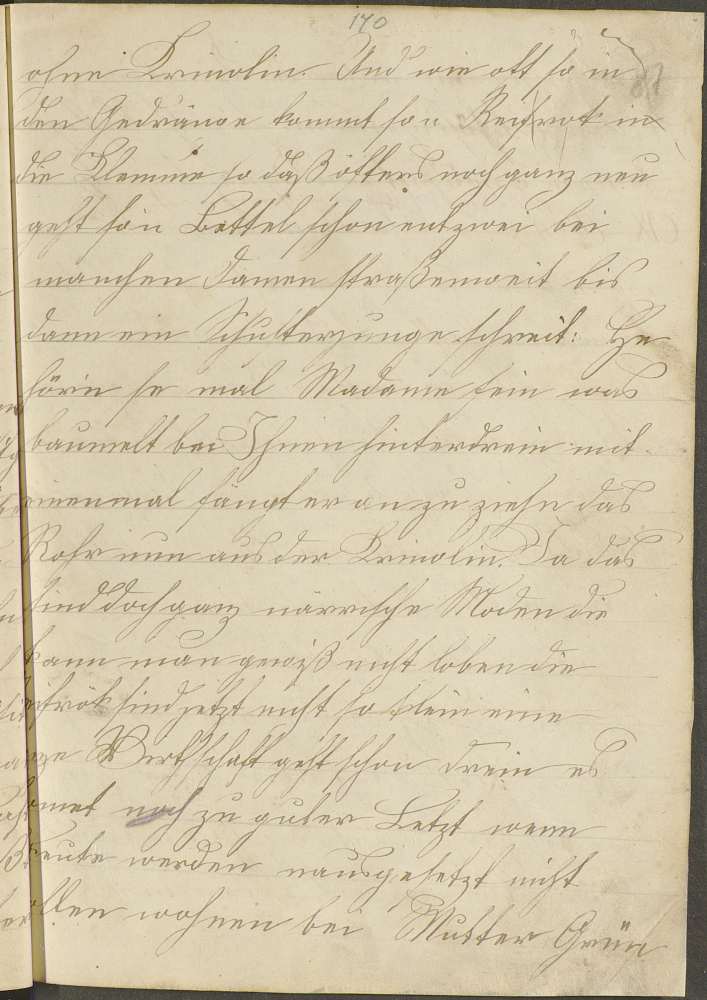 170
ohne Krinolin. Und wie oft so in
den Gedränge kommt so'n Reifrok in
die Klemme so daß öfters noch ganz neu
geht so'n Bettel schon entzwei bei
manchen Damen straßenweit bis
dann ein Schusterjunge schreit: He
hörn se mal Madame sein was
baumelt bei Ihnen hinterdrein mit
einenmal fängt er an zu ziehn das
Rohr nun aus der Krinolin. Ja das
sind doch ganz närrische Moden die
kann man gewiß nicht loben die
Reifrök sind jetzt nicht so klein eine
ganze Werthschaft geht schon drein es
komt noch zu guter Letzt wenn
Leute werden nausgesetzt nicht
wollen wohnen bei Mutter Grün